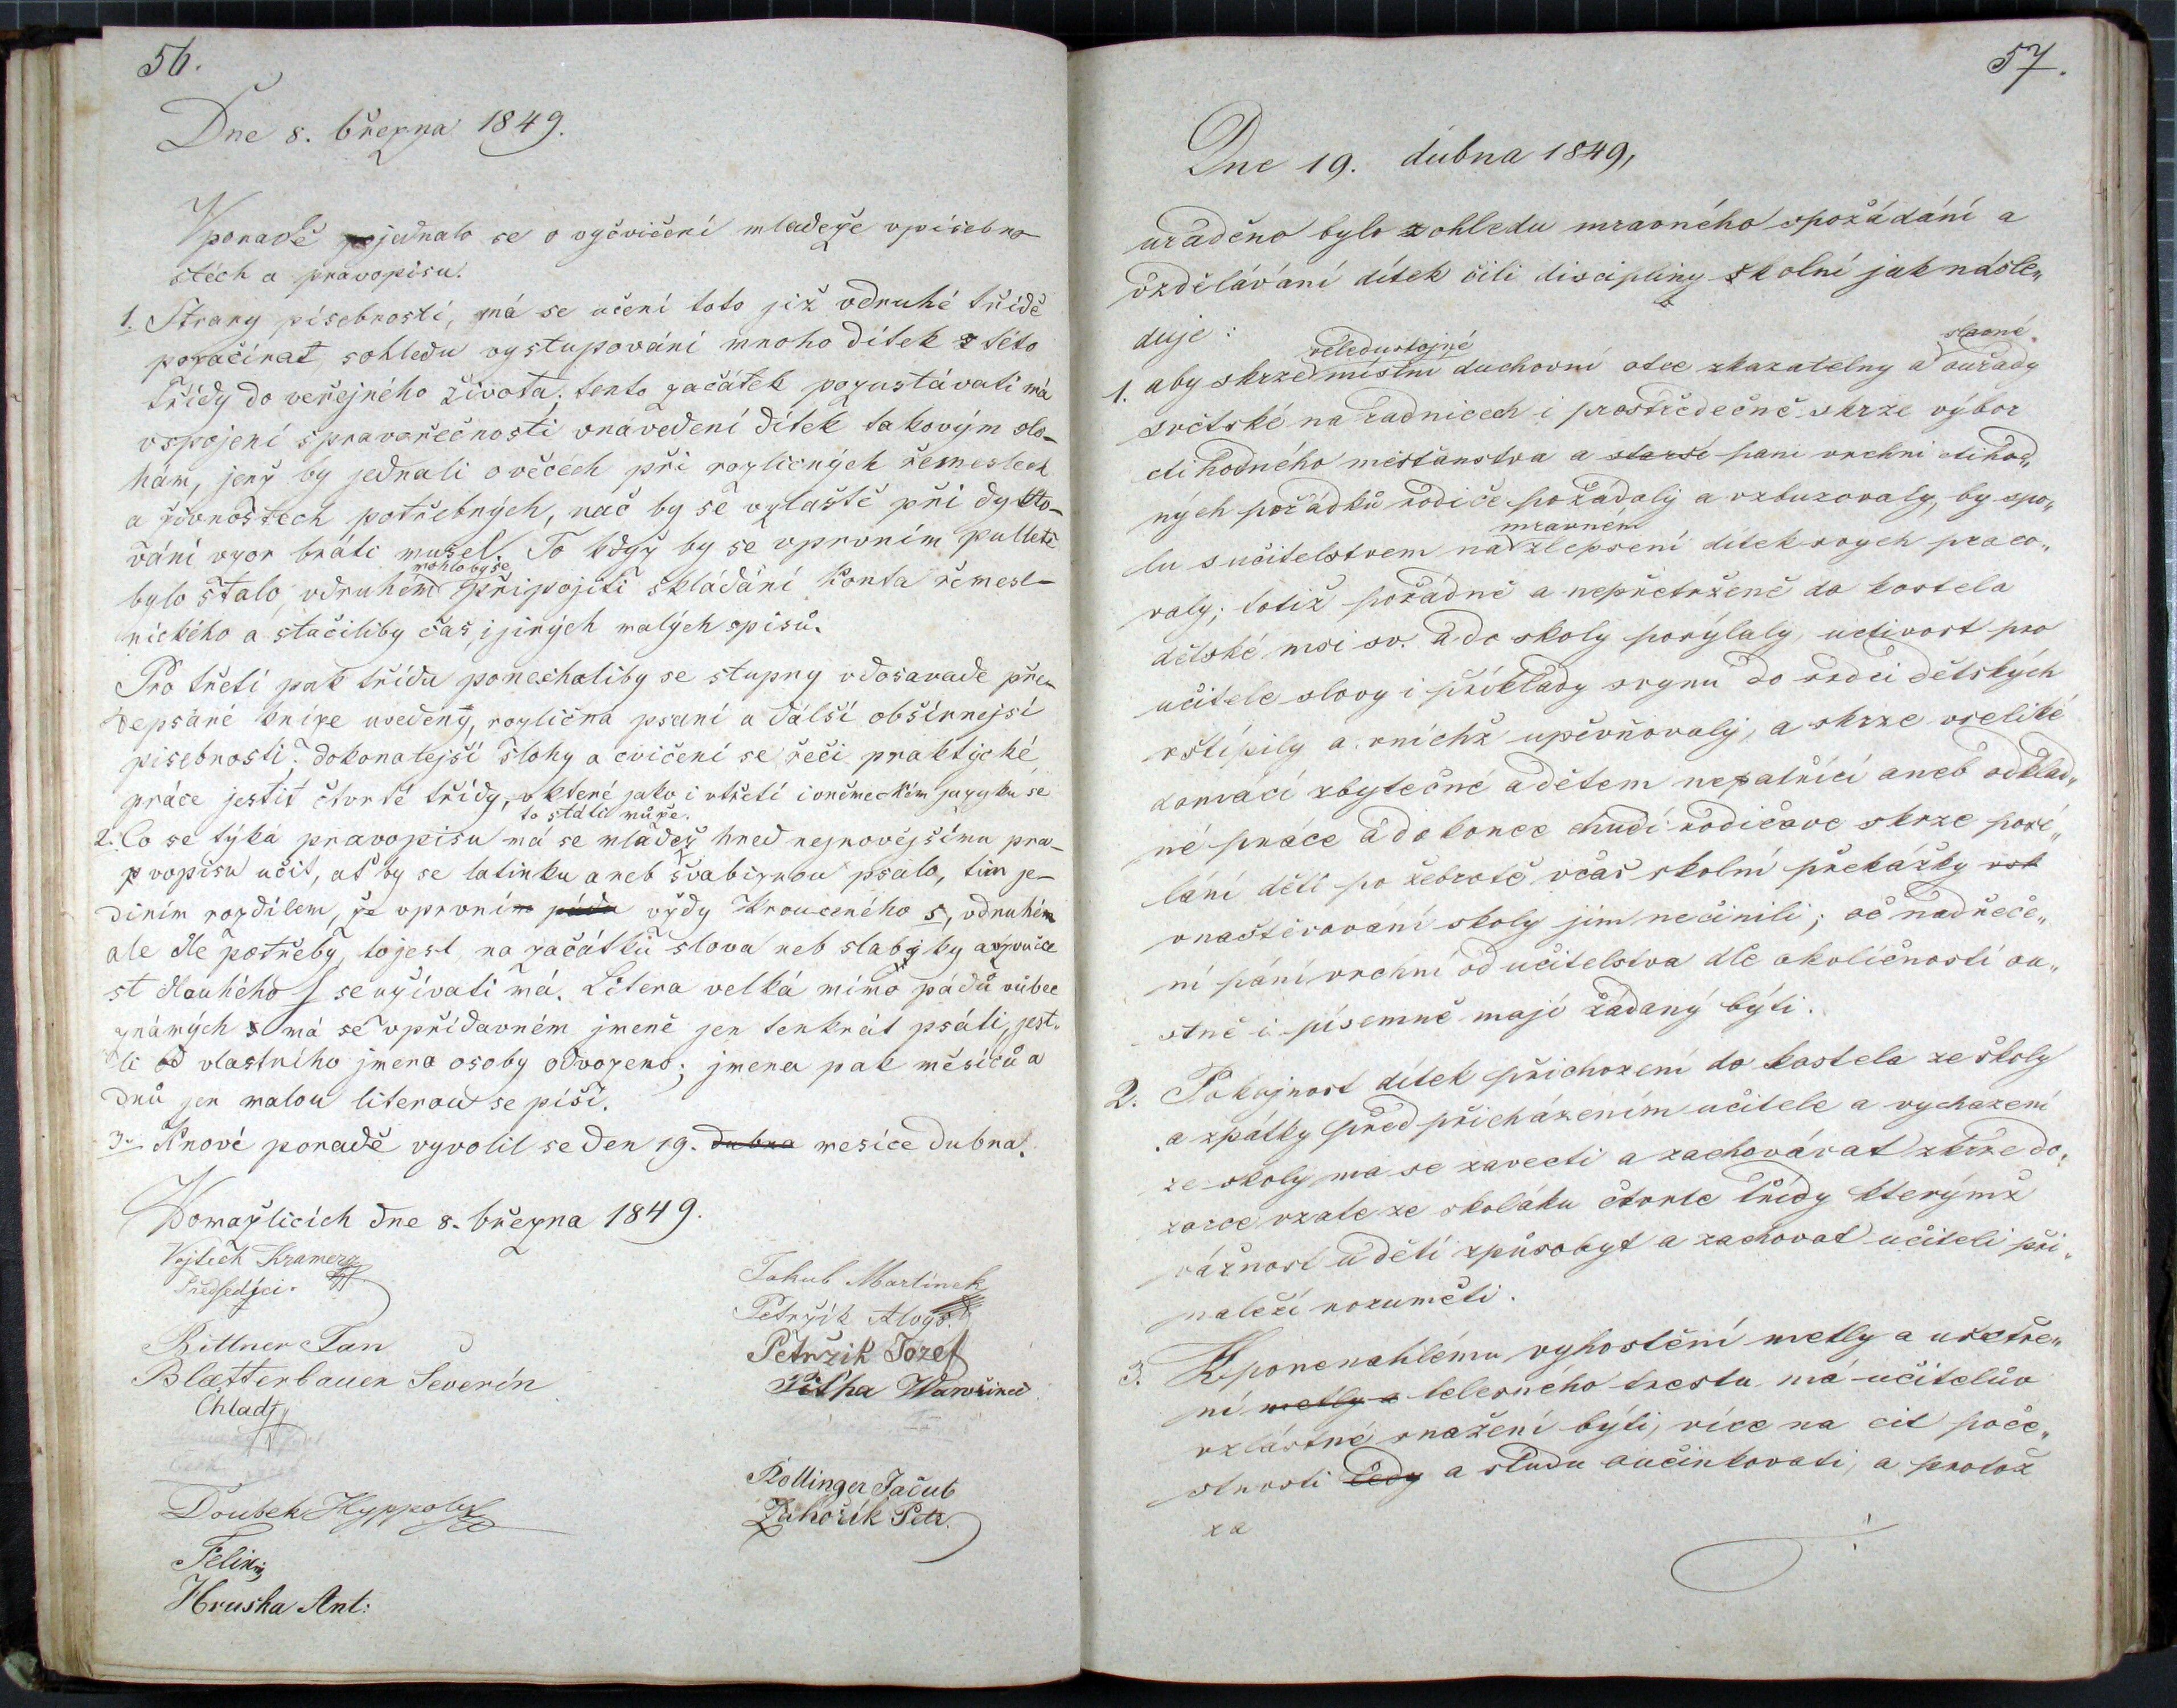 56.
Dne 8. března 1849.
V poradě pojednalo se o vyčvičení mladeže v písebno-
stéch a pravopisu.
1. Strany písebnosti, má se učení toto již v druhé třídě
počínat s ohledu vystupování mnoho dítek z této
třídy do veřejného života; tento začátek pozustávati má
v spojení s pravořečností v navedení dítek takovým slo-
hám, jenž by jednali o věcéch při rozličných řemeslech
a živnostech potřebných, nač by se vzlaště při dykto-
vání vzor bráti musel. To když by se v prvním pulletě
bylo stalo, v druhém mohlo by se připojiti skládání Konta řemesl-
nického a stačiliby čas, i jiných malých spisů.
Pro třetí pak třídu ponechaliby se stupny v dosavade pře-
depsané knize uvedený, rozličná psaní a další obšírnejší
pisebnosti. Dokonalejší slohy a cvičení se řeči praktycké
práce jestiť čtvrté třídy, v které jako i v třetí i v německém jazyku se
to státi může.
2. Co se týká pravopisu má se mládež hned nejnovějšímu pra-
vopisu učit, ať by se latinku aneb švabiznou psalo, tim je-
diním rozdílem, že v prvním pádu vždy Krouceného s, v druhém
ale dle potřeby, to jest, na začátku slova neb slabyky a v zvučce
st dlouhého ſ se užívati má. Litera velká mimo pádů vůbec
známých s má se v přídavném jmeně jen tenkrát psáti, jest-
li od vlastního jmena osoby odvozeno; jmena pak měsíců a
dnů jen malou literou se píší.
3. K nové poradě vyvolil se den 19. dubna mesíce dubna.
V Domažlicích dne 8. března 1849.
Vojtěch Kramerz
Předsedjci.
Rittner Jan
Blætterbauer Severín
Chladt
Doubek Hyppolyt
Felix
Hruska Ant:
Jakub Martinek
Petržik Aloys.
Petržik Jozef
Pitha Wawřinec
Rollinger Jačub
Zahořík Petr.
57.
Dne 19. dubna 1849,
uraděno bylo z ohledu mravného spořádání a
vzdělávání dítek čili disciplíny školní jak násle„
duje:
1. aby skrze veledustojné místní duchovní otce zkazatelny a slavné ouřady
světské na radnicech i prostředečně skrze výbor
ctihodného mesťanstva a starsí pani vrchni ctihod„
ných pořádků rodiče požádaly a vzbuzovaly, by spo„
lu s učitelstvem na mravném zlepsení dítek svych praco„
valy; totiž pořádně a nepřetrženě do kostela
dětské msi sv. a do skoly posýlaly, uctivost pro
učitele slovy i příklady svymi do srdci dětských
vstípily a v nichž upěvňovaly, a skrze všeliké
domácí zbytečné a dětem nepatřící aneb odklad„
né práce a dokonce chudí rodičove skrze posí„
lání dětí po žebrotě včas skolní překážky vsk
v nastěvovaní skoly jim nečinili; oč nadřeče„
ní páni vrchní od učitelstva dle okoličnosti ou„
stně i písemně mají žádaný býti.
2. Pokojnost dítek přichození do kostela ze školy
a zpátky před přicházením učitele a vychazení
ze skoly, ma se zavesti a zachovávat skrze do„
zorce vzate ze skoláku čtvrte třídy kterýmž
vážnost u dětí způsobyt a zachovat učiteli při„
naleží rozuměti.
3. K ponenahlému vyhostění metly a usetře„
ní metly a telesného trestu má učitelův
vzlástné snažení býti, více na cit poče„
stnosti tedy a studu aučinkovati, a protož
za